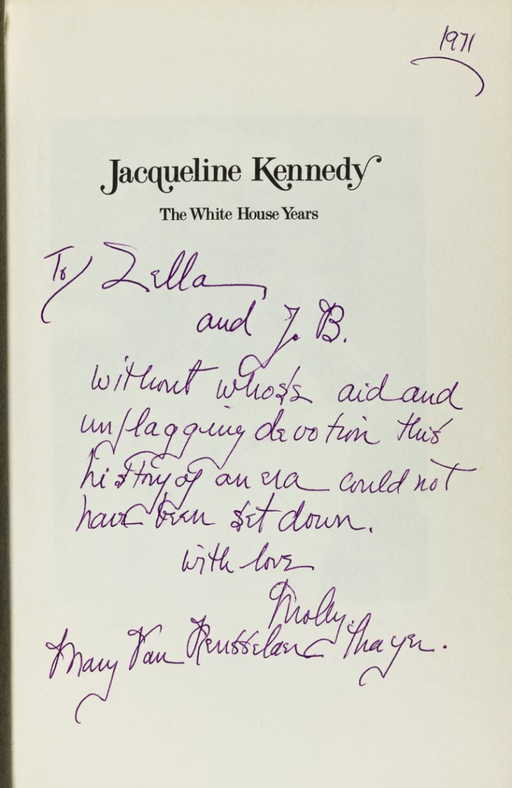 1971
Jacqueline Kennedy
The White House Years
To Zella
and J. B.
without whose aid and
unflagging devotion this
history of an era could not
have been set down.
with love
Molly.
Mary Van Rensselaer Thayer.